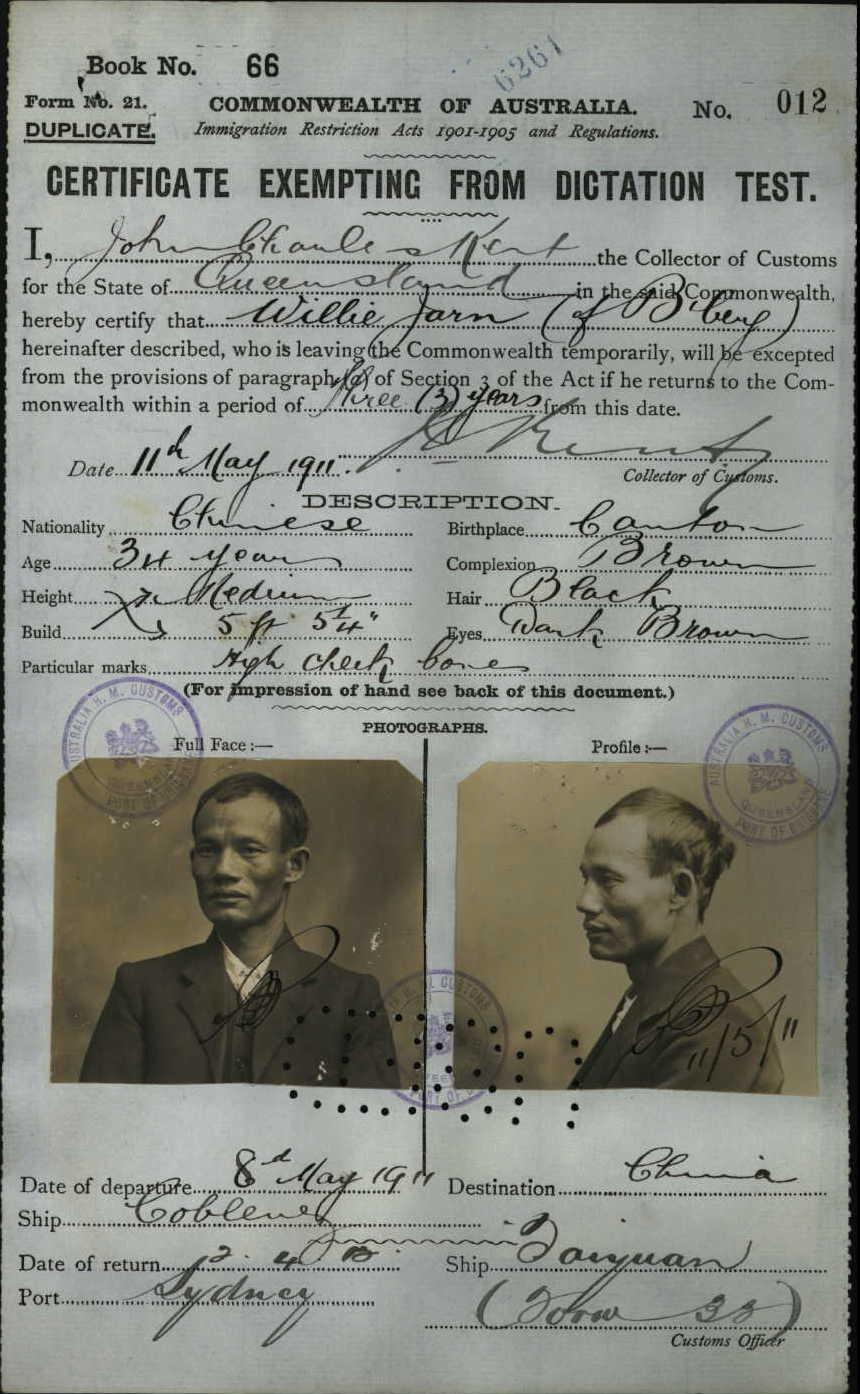 6261
Book No. 66
Form No. 21.
COMMONWEALTH OF AUSTRALIA.
No. 012
DUPLICATE.
Immigration Restriction Acts 1901-1905 and Regulations.
CERTIFICATE EXEMPTING FROM DICTATION TEST.
I, John Charles Kent the Collector of Customs
for the State of Queensland in the said Commonwealth,
hereby certify that Willie Jarn (of B'berg)
hereinafter described, who is leaving the Commonwealth temporarily, will be excepted
from the provisions of paragraph (a) of Section 3 of the Act if he returns to the Com-
monwealth within a period of three (3) years from this date.
Date 11th May 1911.
Kent
Collector of Customs.
DESCRIPTION.
Nationality Chinese
Birthplace Canton
Age 34 years
Complexion Brown
Height Medium
Hair Black
Build 5 ft 5¼"
Eyes Dark Brown
Particular marks High cheek bones
(For impression of hand see back of this document.)
PHOTOGRAPHS.
Full Face :—
Profile :—
AUSTRALIA H. M. CUSTOMS
QUEENSLAND
PORT OF BRISBANE
AUSTRALIA H. M. CUSTOMS
QUEENSLAND
PORT OF BRISBANE
11/5/11
Date of departure 8th May 1911
Destination China
Ship Coblenz
Date of return 12. 4. 13
Ship Taiyuan
Port Sydney
(Form 32)
Customs Officer